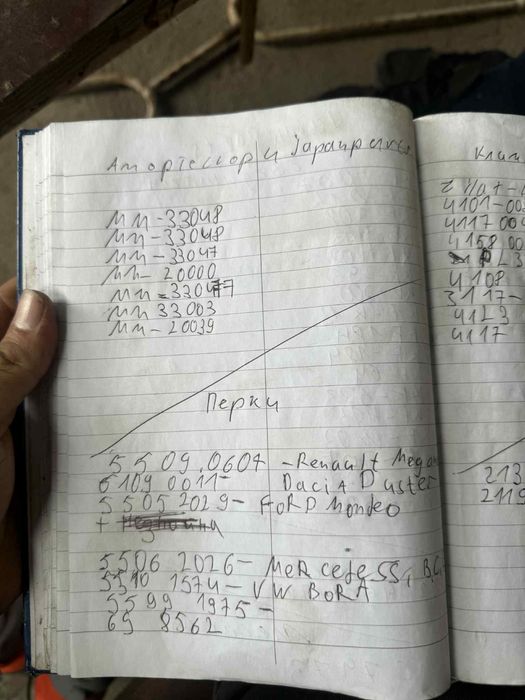 Амортессори Japanparts
MM-33048
MM-33048
MM-33047
MM-20000
MM-33047
MM 33003
MM-20039
Перки
5509.0607 -Renault Megan
6109 0011- Dacia Duster
5505 2029- FoRD Mondeo
+
5506 2026- MeRcedess, B.C
5510 1574- VW BoRA
5599 1975-
69 8562
Клап
4101-00
4117 00
4158 00
L3
4108
3117-
41L3
4117
213
211